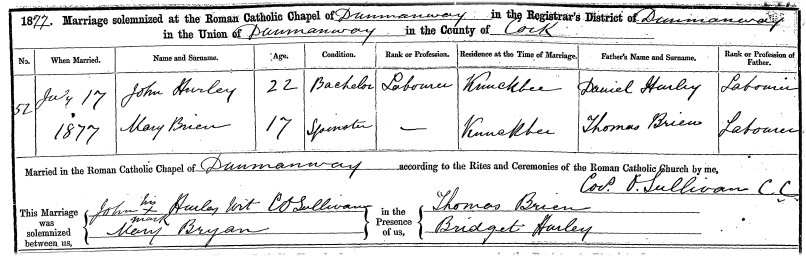 1877. Marriage solemnized at the Roman Catholic Chapel of Dunmanway in the Registrar's District of Dunmanway
in the Union of Dunmanway in the County of Cork
No. When Married. Name and Surname. Age. Condition. Rank or Profession. Residence at the Time of Marriage. Father's Name and Surname. Rank or Profession of Father.
52 July 17 John Hurley 22 Bachelor Labourer Knuckbee Daniel Hurley Labourer
1877 Mary Brien 17 Spinster — Knuckbee Thomas Brien Labourer
Married in the Roman Catholic Chapel of Dunmanway according to the Rites and Ceremonies of the Roman Catholic Church by me,
O'Sullivan C.C.
This Marriage was solemnized between us,
John his x mark Hurley Wit C O'Sullivan
Mary Bryan
in the Presence of us,
Thomas Brien
Bridget Hurley